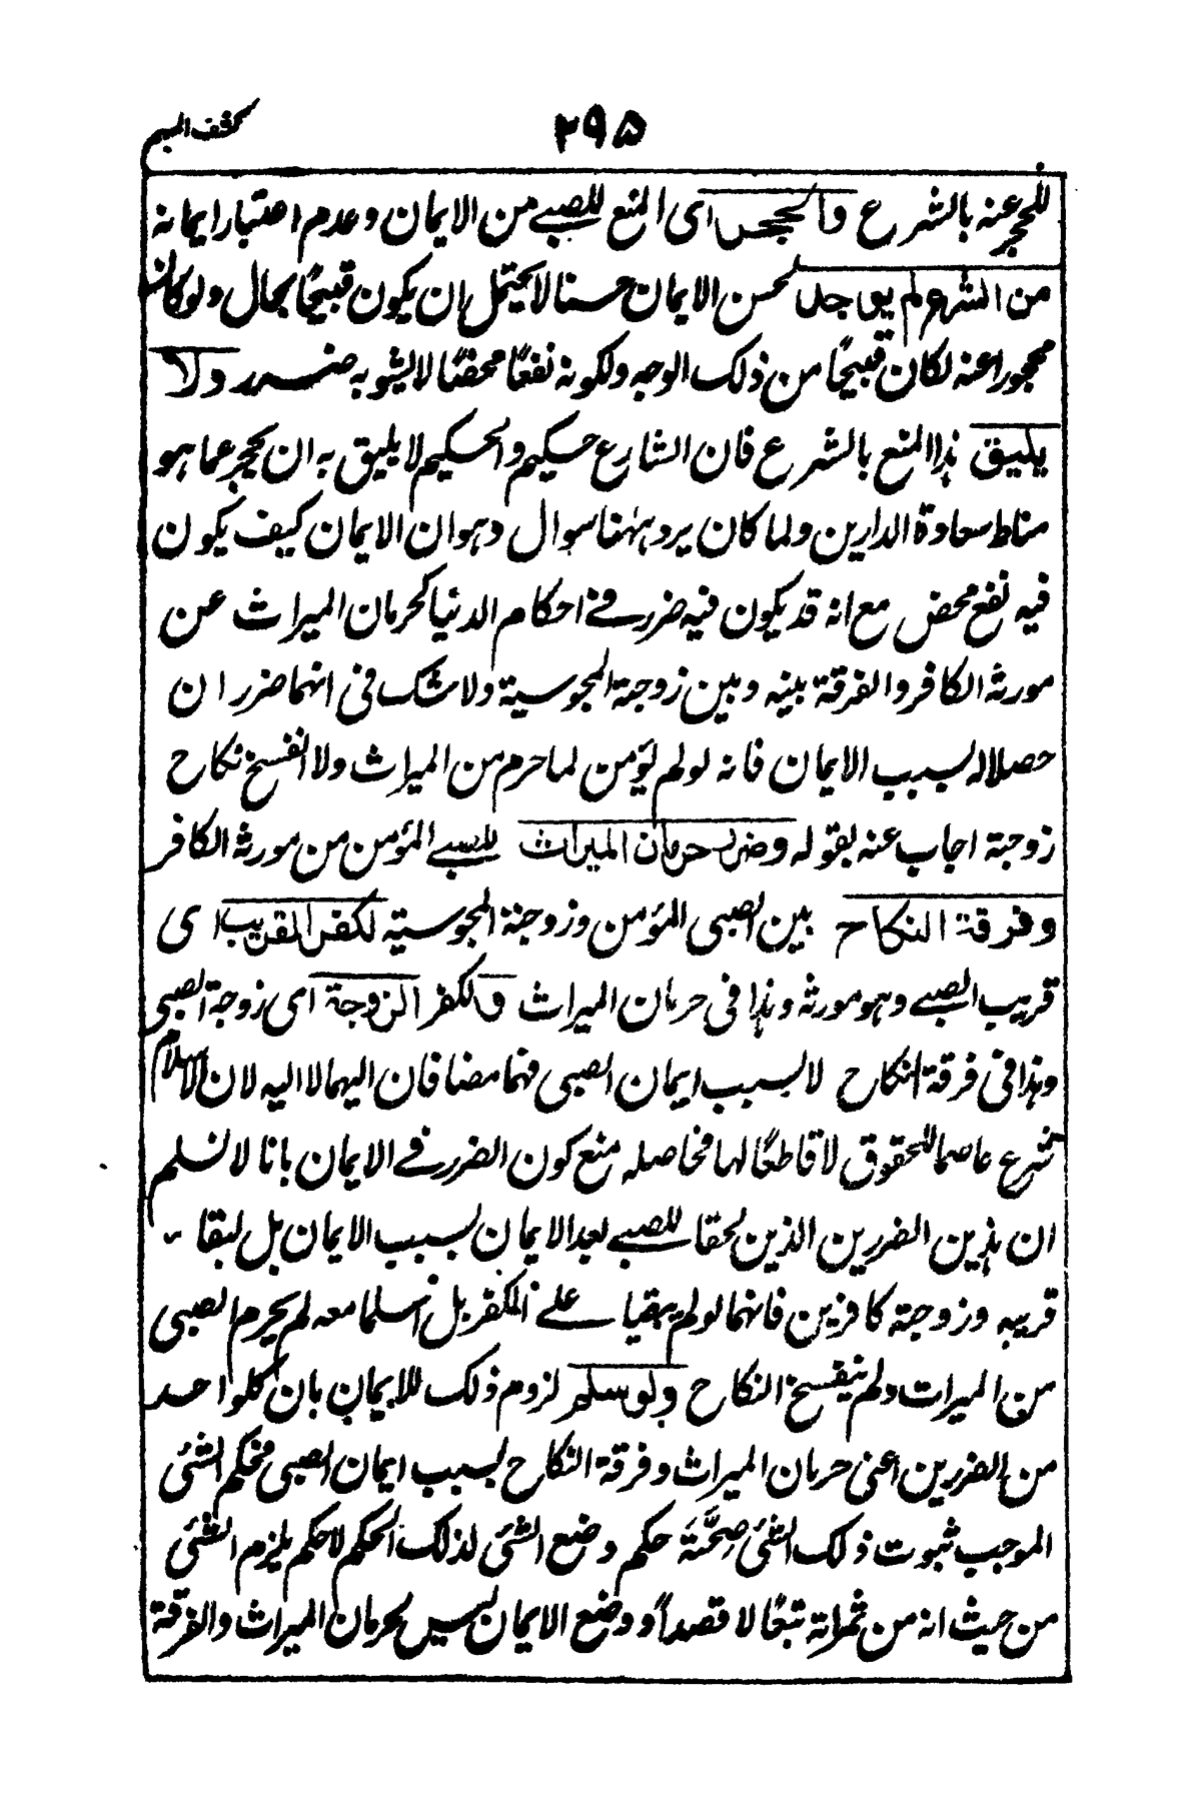 کشف المبهم
۲۹۵
للحجر عنه بالشرع والحجر اى المنع للصبے من الايمان وعدم اعتبار ايمانه
من الشرع لم يوجد لحسن الايمان حسنا لا يحتمل ان يكون قبيحًا بحال ولو كان
محجورا عنه لكان قبيحًا من ذلك الوجه ولكونه نفعًا محضًا لا يشوبه ضرر ولا
يليق هذا المنع بالشرع فان الشارع حكيم والحكيم لا يليق به ان يحجر عما هو
مناط سعادة الدارين ولما كان يرد ههنا سوال وهو ان الايمان كيف يكون
فيه نفع محض مع انه قد يكون فيه ضرر فے احكام الدنيا كحرمان الميراث عن
مورثه الكافر والفرقة بينه وبين زوجته المجوسية ولا شك فى انهما ضرر ان
حصلا له بسبب الايمان فانه لو لم يؤمن لما حرم من الميراث ولا انفسخ نكاح
زوجته اجاب عنه بقوله وضرر حرمان الميراث للصبے المؤمن من مورثه الكافر
وفرقة النكاح بين الصبى المؤمن وزوجته المجوسية لكفر القريب اى
قريب الصبے وهو مورثه وهذا فى حرمان الميراث و لكفر الزوجة اى زوجة الصبى
وهذا فى فرقة النكاح لا بسبب ايمان الصبى فهما مضافان اليهما لا اليه لان الاسلام
شرع عاصما للحقوق لا قاطعًا لها فحاصله منع كون الضرر فے الايمان بانا لا نسلم
ان هذين الضررين الذين لحقا للصبے بعد الايمان بسبب الايمان بل لبقاء
قريبه وزوجته كافرين فانهما لو لم يبقيا علے الكفر بل اسلما معه لم يحرم الصبى
من الميراث ولم ينفسخ النكاح ولو سلم لزوم ذلك للايمان بان كلوا حد
من الضررين اعنى حرمان الميراث وفرقة النكاح بسبب ايمان الصبى فحكم الشئ
الموجب ثبوت ذلك الشئ صِحَّتَهٗ حكم وضع الشئ لذلك الحكم لا حكم يلزم الشئ
من حيث انه من ثمراته تبعًا لا قصدًا ووضع الايمان ليس لحرمان الميراث والفرقة